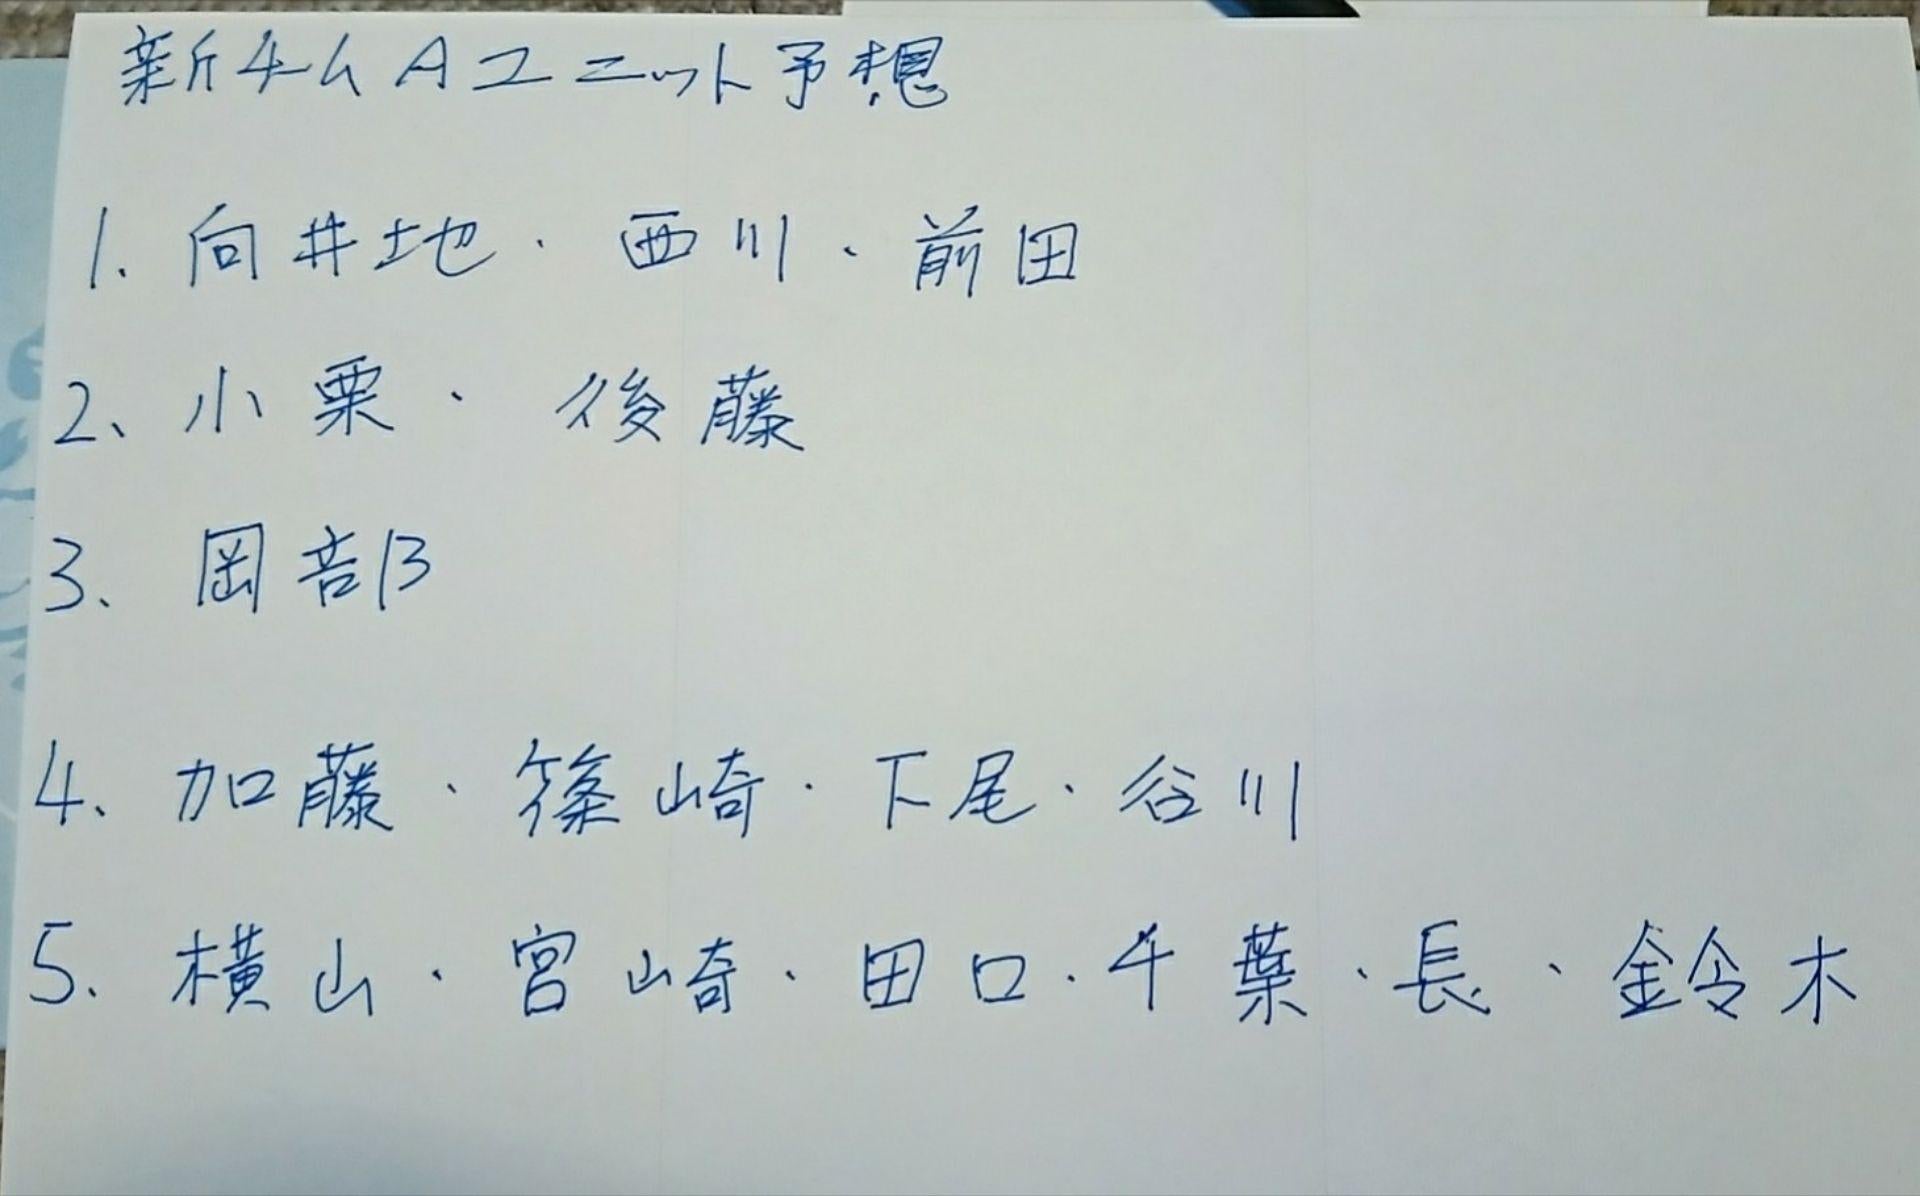 新チームAユニット予想
1. 向井地・西川・前田
2、小栗・後藤
3、岡部
4、加藤・篠崎・下尾・谷川
5. 横山・宮崎・田口・千葉・長・鈴木